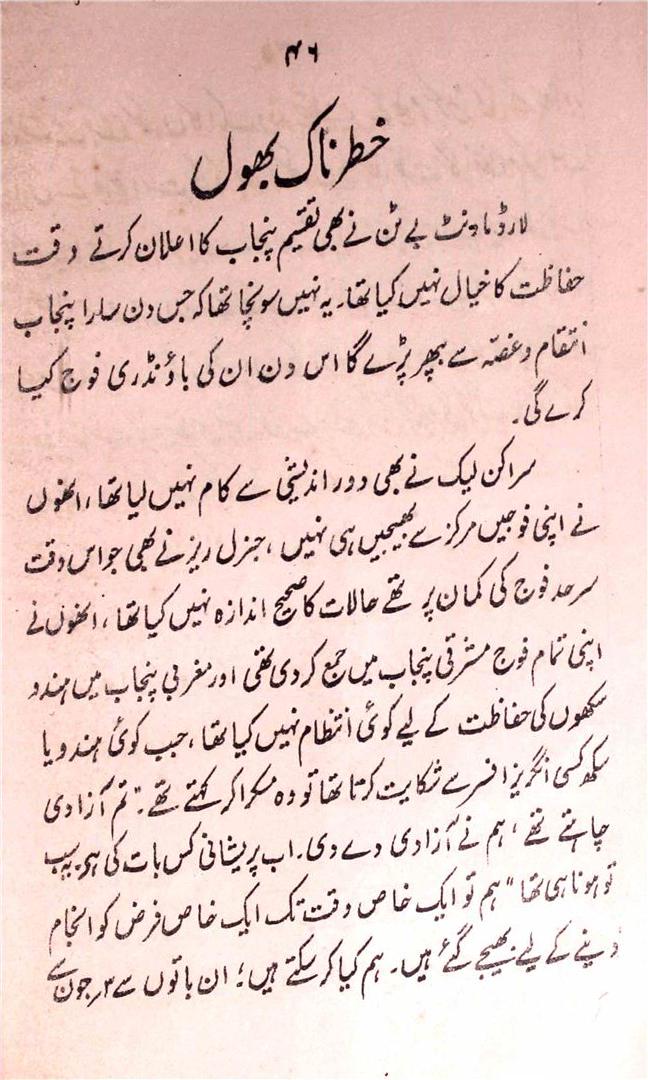 ۴۶
خطرناک بھول
لارڈ ماونٹ بے ٹن نے بھی تقسیم پنجاب کا اعلان کرتے وقت
حفاظت کا خیال نہیں کیا تھا۔ یہ نہیں سونچا تھا کہ جس دن سارا پنجاب
انتقام و غصّہ سے بپھر پڑے گا اس دن ان کی باؤنڈری فوج کیا
کرے گی۔
سر اکن لیک نے بھی دور اندیشی سے کام نہیں لیا تھا، انھوں
نے اپنی فوجیں مرکز سے بھیجیں ہی نہیں، جنرل ریز نے بھی جو اس وقت
سرحد فوج کی کمان پر تھے حالات کا صحیح اندازہ نہیں کیا تھا، انھوں نے
اپنی تمام فوج مشرقی پنجاب میں جمع کر دی تھی اور مغربی پنجاب میں ہندو
سکھوں کی حفاظت کے لیے کوئی انتظام نہیں کیا تھا، جب کوئی ہندو یا
سکھ کسی انگریز افسر سے شکایت کرتا تھا تو وہ مسکرا کر کہتے تھے۔ "تم آزادی
چاہتے تھے، ہم نے آزادی دے دی۔ اب پریشانی کس بات کی ہے۔ یہ سب
تو ہونا ہی تھا" ہم تو ایک خاص وقت تک ایک خاص فرض کو انجام
دینے کے لیے بھیجے گئے ہیں۔ ہم کیا کر سکتے ہیں؛ ان باتوں سے ۳؍ جون سے